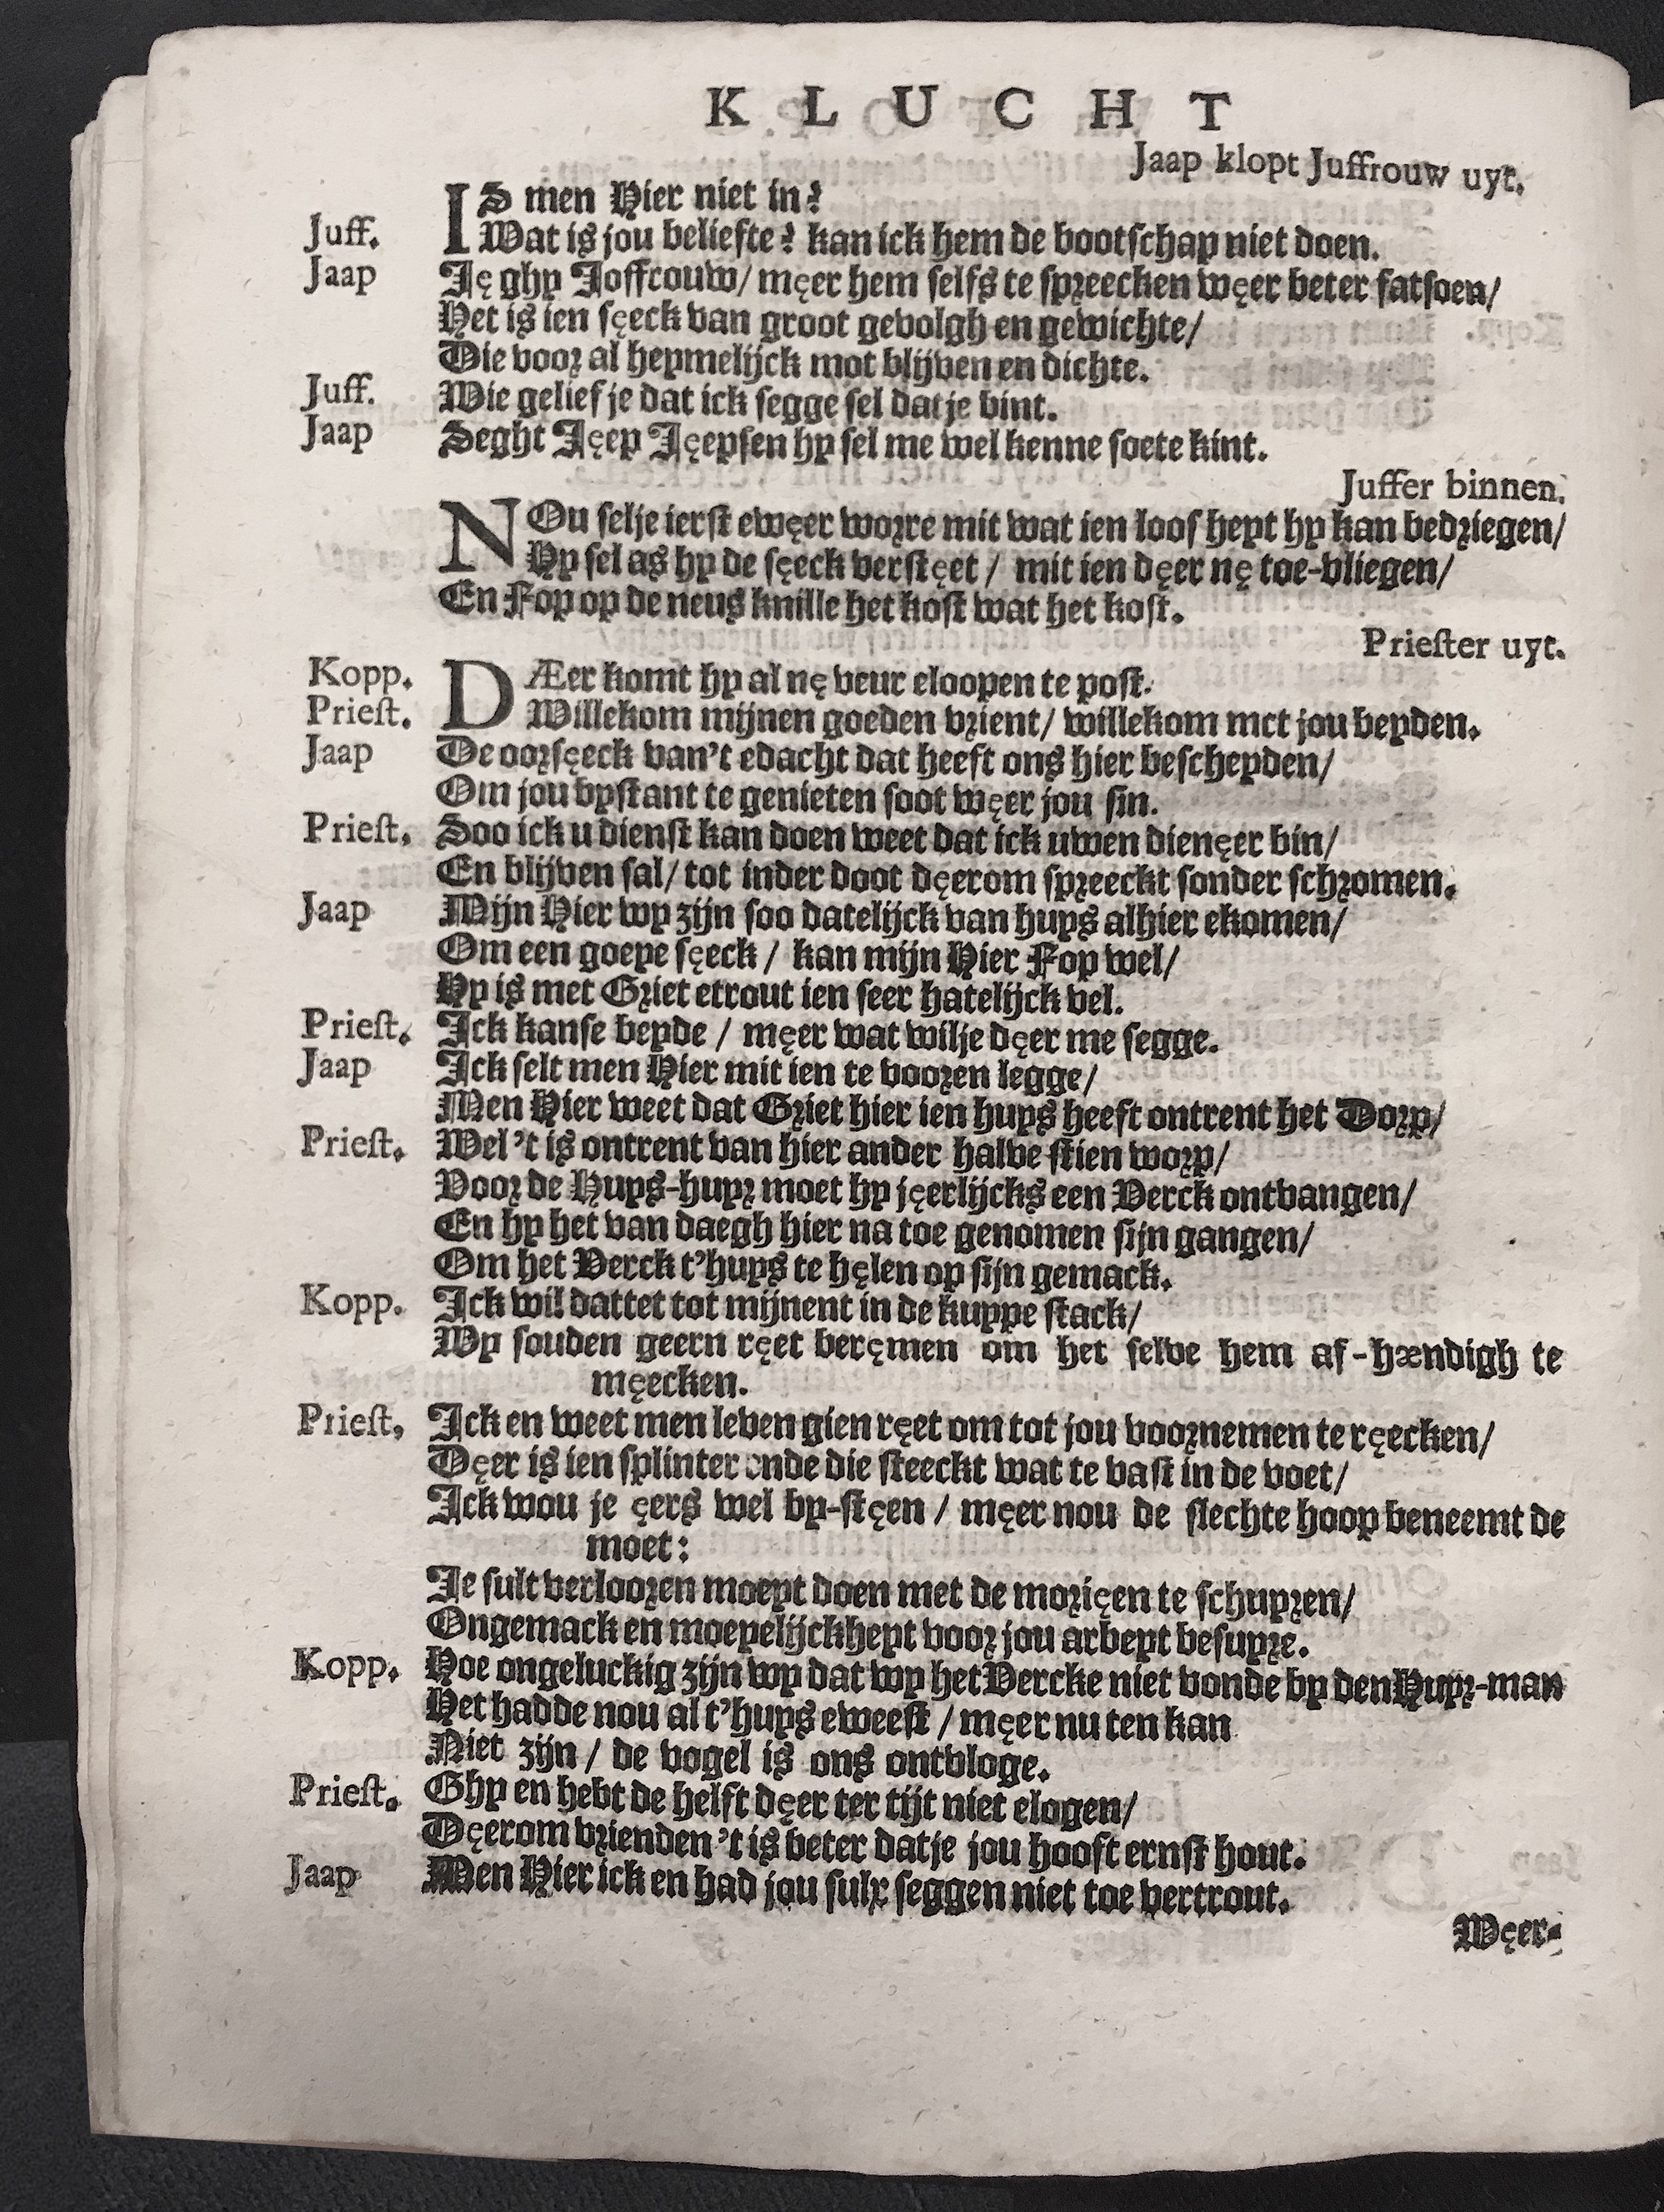 KLUCHT
Jaap klopt Juffrouw uyt.
IS men Hier niet in?
Juff. Wat is jou beliefte? kan ick hem de bootschap niet doen.
Jaap Ję ghy Joffrouw/ męer hem selfs te spreecken węer beter fatsoen/
Het is ien sęeck van groot gevolgh en gewichte/
Die voor al heymelijck mot blijven en dichte.
Juff. Wie gelief je dat ick segge sel dat je bint.
Jaap Seght Jęep Jęepsen hy sel me wel kenne soete kint.
Juffer binnen.
NOu selje ierst ewęer worre mit wat ien loosheyt hy kan bedriegen/
Hy sel as hy de sęeck verstęet / mit ien dęer nę toe-vliegen/
En Fop op de neus knille het kost wat het kost.
Priester uyt.
Kopp. DÆer komt hy al nę veur eloopen te post.
Priest. Willekom mijnen goeden vrient/ willekom met jou beyden.
Jaap De oorsęeck van't edacht dat heeft ons hier bescheyden/
Om jou bystant te genieten soot węer jou sin.
Priest. Soo ick u dienst kan doen weet dat ick uwen dienęer bin/
En blijven sal/ tot inder doot dęerom spreeckt sonder schromen.
Jaap Mijn Hier wy zijn soo datelijck van huys alhier ekomen/
Om een goeye sęeck / kan mijn Hier Fop wel/
Hy is met Griet etrout ien seer hatelijck vel.
Priest. Ick kanse beyde / męer wat wilje dęer me segge.
Jaap Ick selt men Hier mit ien te vooren legge/
Men Hier weet dat Griet hier ien huys heeft ontrent het Dorp/
Priest. Wel 't is ontrent van hier ander halve stien worp/
Voor de Huys-huyr moet hy jęerlijcks een Verck ontvangen/
En hy het van daegh hier na toe genomen sijn gangen/
Om het Verck t'huys te hęlen op sijn gemack.
Kopp. Ick wil dattet tot mijnent in de kuype stack/
Wy souden geern ręet beręmen om het selve hem af-hændigh te
męecken.
Priest. Ick en weet men leven gien ręet om tot jou voornemen te ręecken/
Dęer is ien splinter onde die steeckt wat te vast in de voet/
Ick wou je ęers wel by-stęen / męer nou de slechte hoop beneemt de
moet:
Je sult verlooren moeyt doen met de morięen te schuyren/
Ongemack en moeyelijckheyt voor jou arbeyt besuyre.
Kopp. Hoe ongeluckig zijn wy dat wy het Vercke niet vonde by den Huyr-man
Het hadde nou al t'huys eweest / męer nu ten kan
Niet zijn / de vogel is ons ontvloge.
Priest. Ghy en hebt de helft dęer ter tijt niet elogen/
Dęerom vrienden 't is beter datje jou hooft ernst hout.
Jaap Men Hier ick en had jou sulx seggen niet toe vertrout.
Węer-